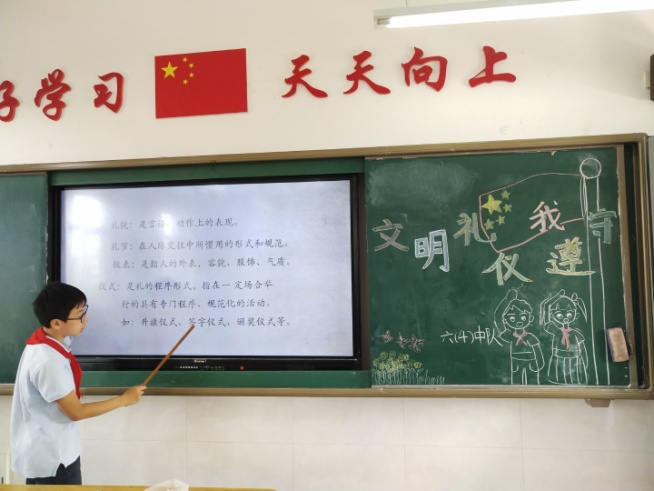 好学习
天天向上
礼貌：是言语、动作上的表现。
礼节：在人际交往中所惯用的形式和规范。
仪表：是指人的外表，容貌、服饰、气质。
仪式：是礼的程序形式，指在一定场合举
行的具有专门程序、规范化的活动。
如：升旗仪式、签字仪式、颁奖仪式等。
文明礼仪 我遵守
六(4)中队